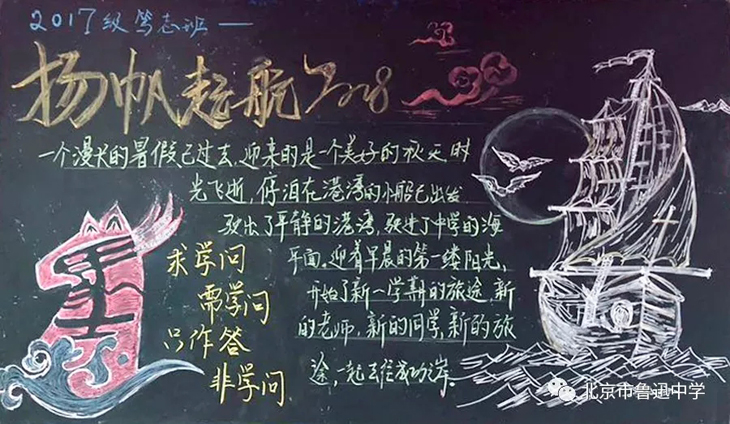 2017级笃志班一
扬帆起航2018
一个漫长的暑假已过去,迎来的是一个美好的秋天时
光飞逝,停泊在港湾的小船已出发
驶出了平静的港湾,驶进了中学的海
平面。迎着早晨的第一缕阳光,
开始了新一学期的旅途,新
的老师,新的同学,新的旅
途,一起去往成功岸。
求学问
需学问
只作答
非学问
北京市鲁迅中学